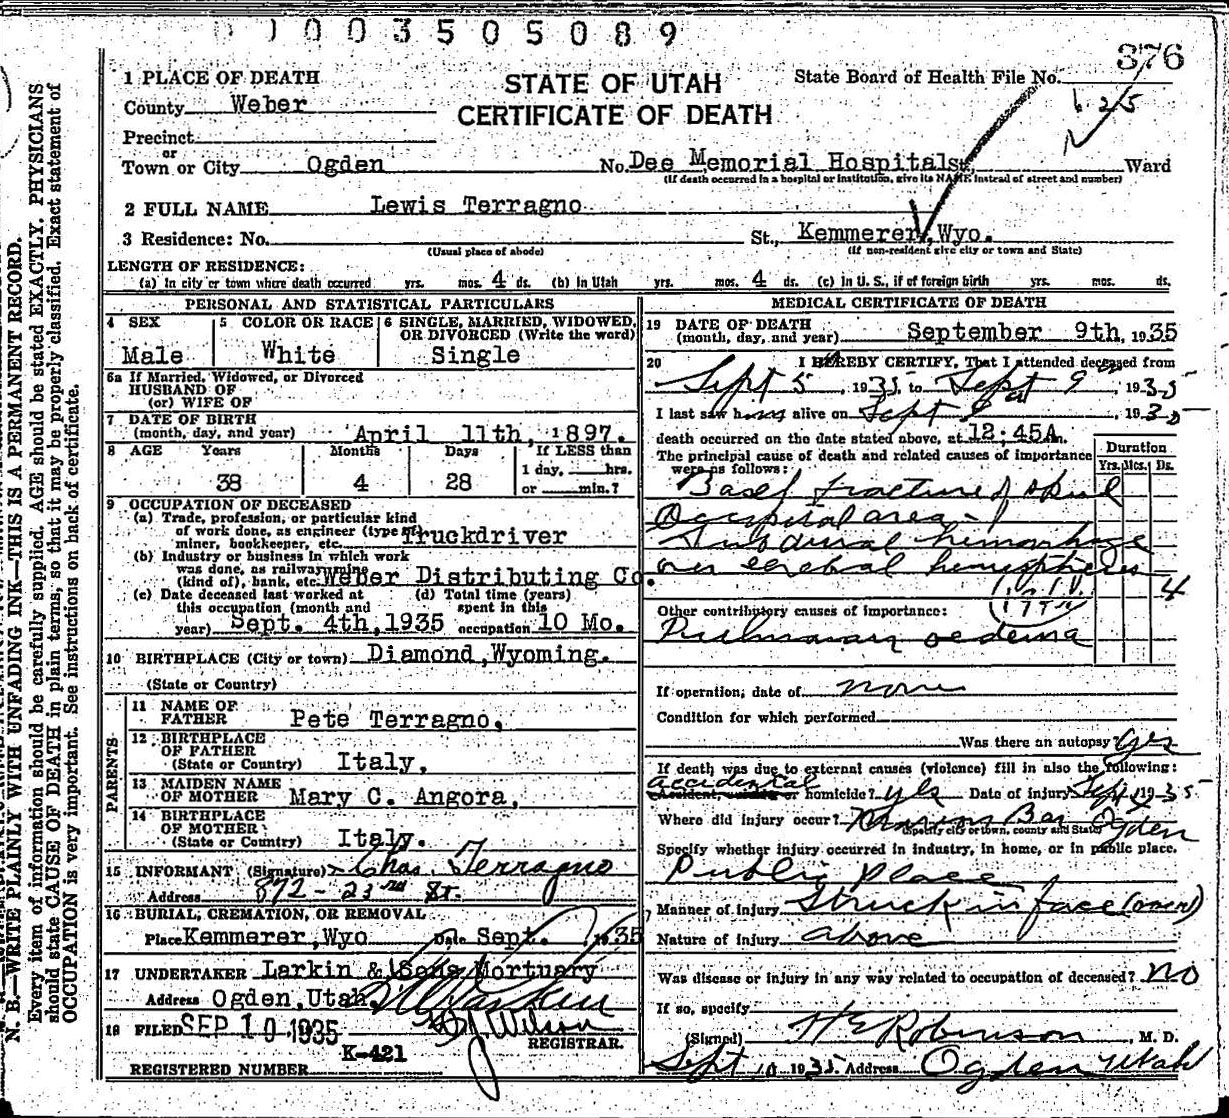 1003505089
376
1 PLACE OF DEATH
STATE OF UTAH
CERTIFICATE OF DEATH
State Board of Health File No.
125
County Weber
Precinct
or
Town or City Ogden No. Dee Memorial Hospital St., Ward
(If death occurred in a hospital or institution, give its NAME instead of street and number)
2 FULL NAME Lewis Terragno
3 Residence: No. St., Kemmerer, Wyo.
(Usual place of abode) (If non-resident give city or town and State)
LENGTH OF RESIDENCE:
(a) In city or town where death occurred yrs. mos. 4 ds. (b) In Utah yrs. mos. 4 ds. (c) In U. S., if of foreign birth yrs. mos. ds.
PERSONAL AND STATISTICAL PARTICULARS
4 SEX Male
5 COLOR OR RACE White
6 SINGLE, MARRIED, WIDOWED, OR DIVORCED (Write the word) Single
6a If Married, Widowed, or Divorced
HUSBAND OF
(or) WIFE OF
7 DATE OF BIRTH
(month, day, and year) April 11th, 1897.
8 AGE Years Months Days If LESS than
1 day, hrs.
38 4 28 or min.?
9 OCCUPATION OF DECEASED
(a) Trade, profession, or particular kind
of work done, as engineer (type of
miner, bookkeeper, etc. Truckdriver
(b) Industry or business in which work
was done, as railway, mine
(kind of), bank, etc. Weber Distributing Co.
(c) Date deceased last worked at
this occupation (month and
year) Sept. 4th, 1935
(d) Total time (years)
spent in this
occupation 10 Mo.
10 BIRTHPLACE (City or town) Diamond, Wyoming.
(State or Country)
PARENTS
11 NAME OF
FATHER Pete Terragno,
12 BIRTHPLACE
OF FATHER
(State or Country) Italy,
13 MAIDEN NAME
OF MOTHER Mary C. Angora,
14 BIRTHPLACE
OF MOTHER
(State or Country) Italy.
15 INFORMANT (Signature) Chas. Terragno
Address 872 - 23rd St.
16 BURIAL, CREMATION, OR REMOVAL
Place Kemmerer, Wyo Date Sept. 1935
17 UNDERTAKER Larkin & Sons Mortuary
Address Ogden, Utah.
18 FILED SEP 10 1935 Wilson
REGISTRAR.
K-421
REGISTERED NUMBER
MEDICAL CERTIFICATE OF DEATH
19 DATE OF DEATH
(month, day, and year) September 9th, 1935
20 I HEREBY CERTIFY, That I attended deceased from
Sept 5, 1935, to Sept 9, 1935
I last saw him alive on Sept 9, 1935
death occurred on the date stated above, at 12:45A m.
The principal cause of death and related causes of importance
were as follows:
Duration
Yrs. Mos. Ds.
Basel fracture of skul
Occipital area
Subdural hemorrhage
over cerebral hemispheres 4
Other contributory causes of importance:
Pulmonary oedema
If operation, date of none
Condition for which performed
Was there an autopsy? yes
If death was due to external causes (violence) fill in also the following:
accidental
Accident, suicide or homicide? yes Date of injury Sept 4 1935
Where did injury occur? Bar Ogden
(Specify city or town, county and State)
Specify whether injury occurred in industry, in home, or in public place.
Public Place
Manner of injury Struck in face (over)
Nature of injury above
Was disease or injury in any way related to occupation of deceased? no
If so, specify
(Signed) H E Robinson, M. D.
Sept 10 1935 Address Ogden Utah
N. B.—WRITE PLAINLY WITH UNFADING INK—THIS IS A PERMANENT RECORD.
Every item of information should be carefully supplied. AGE should be stated EXACTLY. PHYSICIANS
should state CAUSE OF DEATH in plain terms, so that it may be properly classified. Exact statement of
OCCUPATION is very important. See instructions on back of certificate.